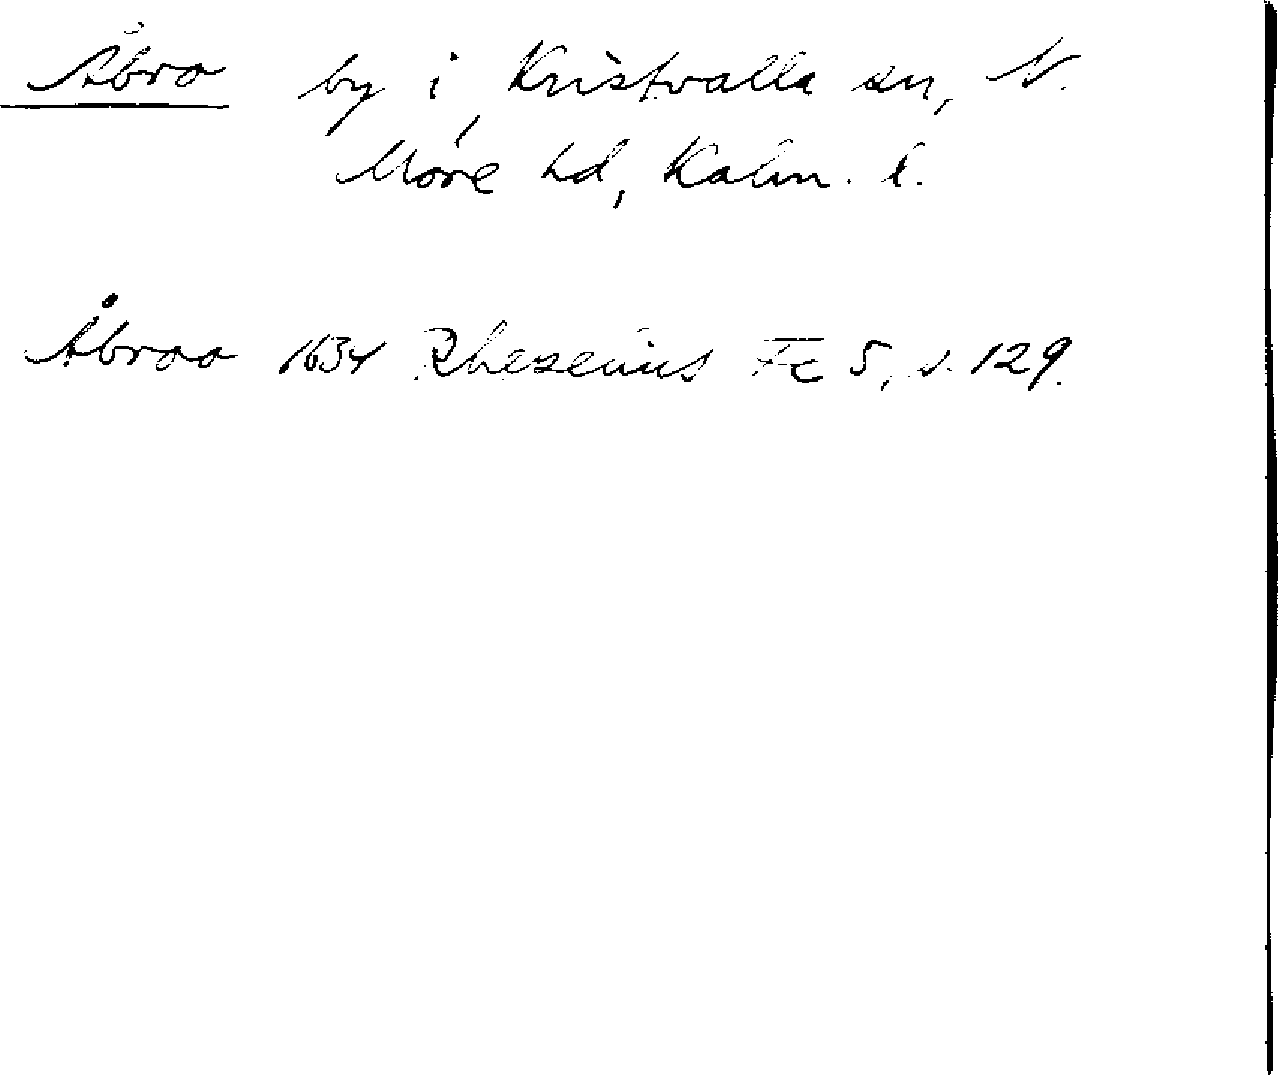 Åbro by i Kristvalla sn, N.
Möre hd, Kalm. l.
Åbroo 1634 Rhezelius Fc 5, s. 129.